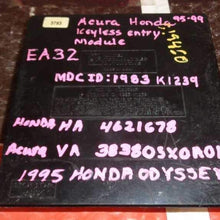 3793
Acura Honda 95-99
Keyless entry
Module
EA32
MDC ID: 1983 K1239
HONDA HA 4621678
Acura VA 38380SX0A01
1995 HONDA ODYSSEY